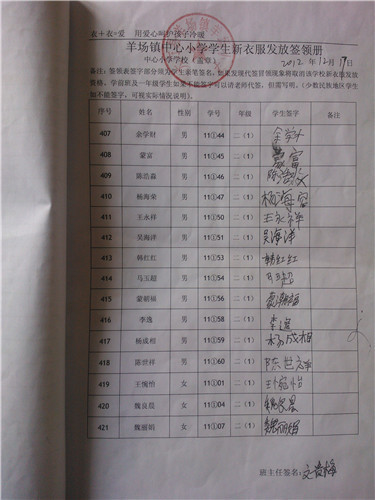 衣+衣=爱 用爱心呵护孩子冷暖
羊场镇中心小学学生新衣服发放签领册
中心小学学校（盖章） 2012年12月19日
备注：签领表签字部分须为学生亲笔签名，如果发现代签冒领现象将取消该学校新衣服发放
资格。学前班及一年级学生如果不能签字可以请老师代签，但需写明。（少数民族地区学生
如不能签字，可视实际情况说明）。
序号 姓名 性别 学号 年级 学生签字 备注
407 余学财 男 11①44 二（1） 余学
408 蒙富 男 11①45 二（1） 蒙富
409 陈浩淼 男 11①46 二（1） 陈浩
410 杨海荣 男 11①47 二（1） 杨海
411 王永祥 男 11①51 二（1） 王永祥
412 吴海洋 男 11①52 二（1） 吴海洋
413 韩红红 男 11①53 二（1） 韩红红
414 马玉超 男 11①54 二（1） 马玉超
415 蒙新福 男 11①56 二（1）
416 李逸 男 11①58 二（1） 李逸
417 杨成相 男 11①59 二（1） 杨成相
418 陈世祥 男 11①60 二（1） 陈世祥
419 王愧怡 女 11①01 二（1） 王
420 魏良晨 女 11①04 二（1） 魏良晨
421 魏丽娟 女 11①07 二（1） 魏丽娟
班主任签名：